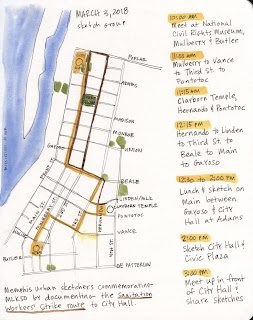 MARCH 3, 2018
sketch group
POPLAR
ADAMS
MADISON
MONROE
UNION
GAYOSO
BEALE
LINDEN/MLK
CLAYBORN TEMPLE
PONTOTOC
VANCE
BUTLER
DE PASTERSON
Memphis urban sketchers commemorating
MLK50 by documenting the Sanitation
Workers' Strike route to City Hall.
10:00 AM
Meet at National
Civil Rights Museum,
Mulberry & Butler
11:00 AM
Mulberry to Vance
to Third St. to
Pontotoc
11:15 AM
Clayborn Temple,
Hernando & Pontotoc
12:15 PM
Hernando to Linden
to Third St. to
Beale to Main
to Gayoso
12:30 to 2:00 PM
Lunch & sketch on
Main between
Gayoso & City
Hall at Adams
2:00 PM
Sketch City Hall &
Civic Plaza
3:00 PM
Meet up in front
of City Hall &
share sketches